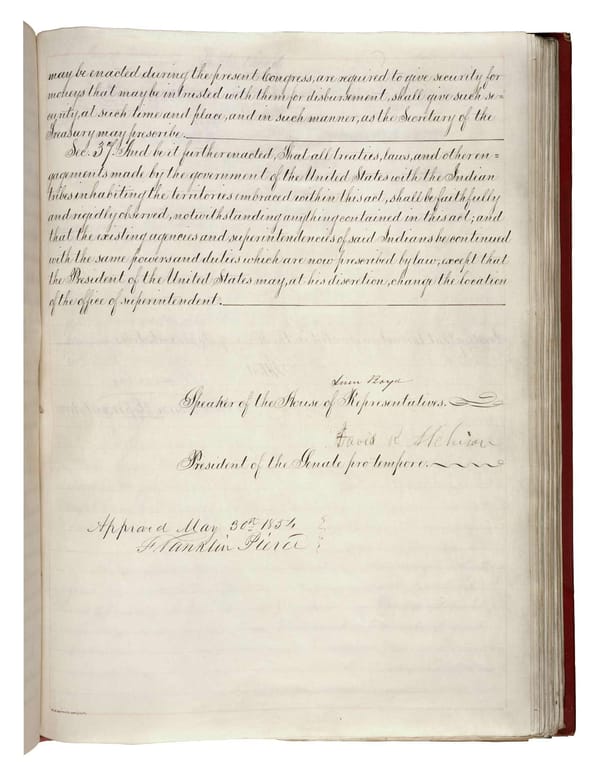 may be enacted during the present Congress, are required to give security for
moneys that may be intrusted with them for disbursement, shall give such se=
curity, at such time and place, and in such manner, as the Secretary of the
Treasury may prescribe.
Sec. 37. And be it further enacted, That all treaties, laws, and other en=
gagements made by the government of the United States with the Indian
tribes inhabiting the territories embraced within this act, shall be faithfully
and rigidly observed, notwithstanding anything contained in this act; and
that the existing agencies and superintendencies of said Indians be continued
with the same powers and duties which are now prescribed by law, except that
the President of the United States may, at his discretion, change the location
of the office of superintendent.
Linn Boyd
Speaker of the House of Representatives.
David R Atchison
President of the Senate pro tempore.
Approved May 30th 1854
Franklin Pierce